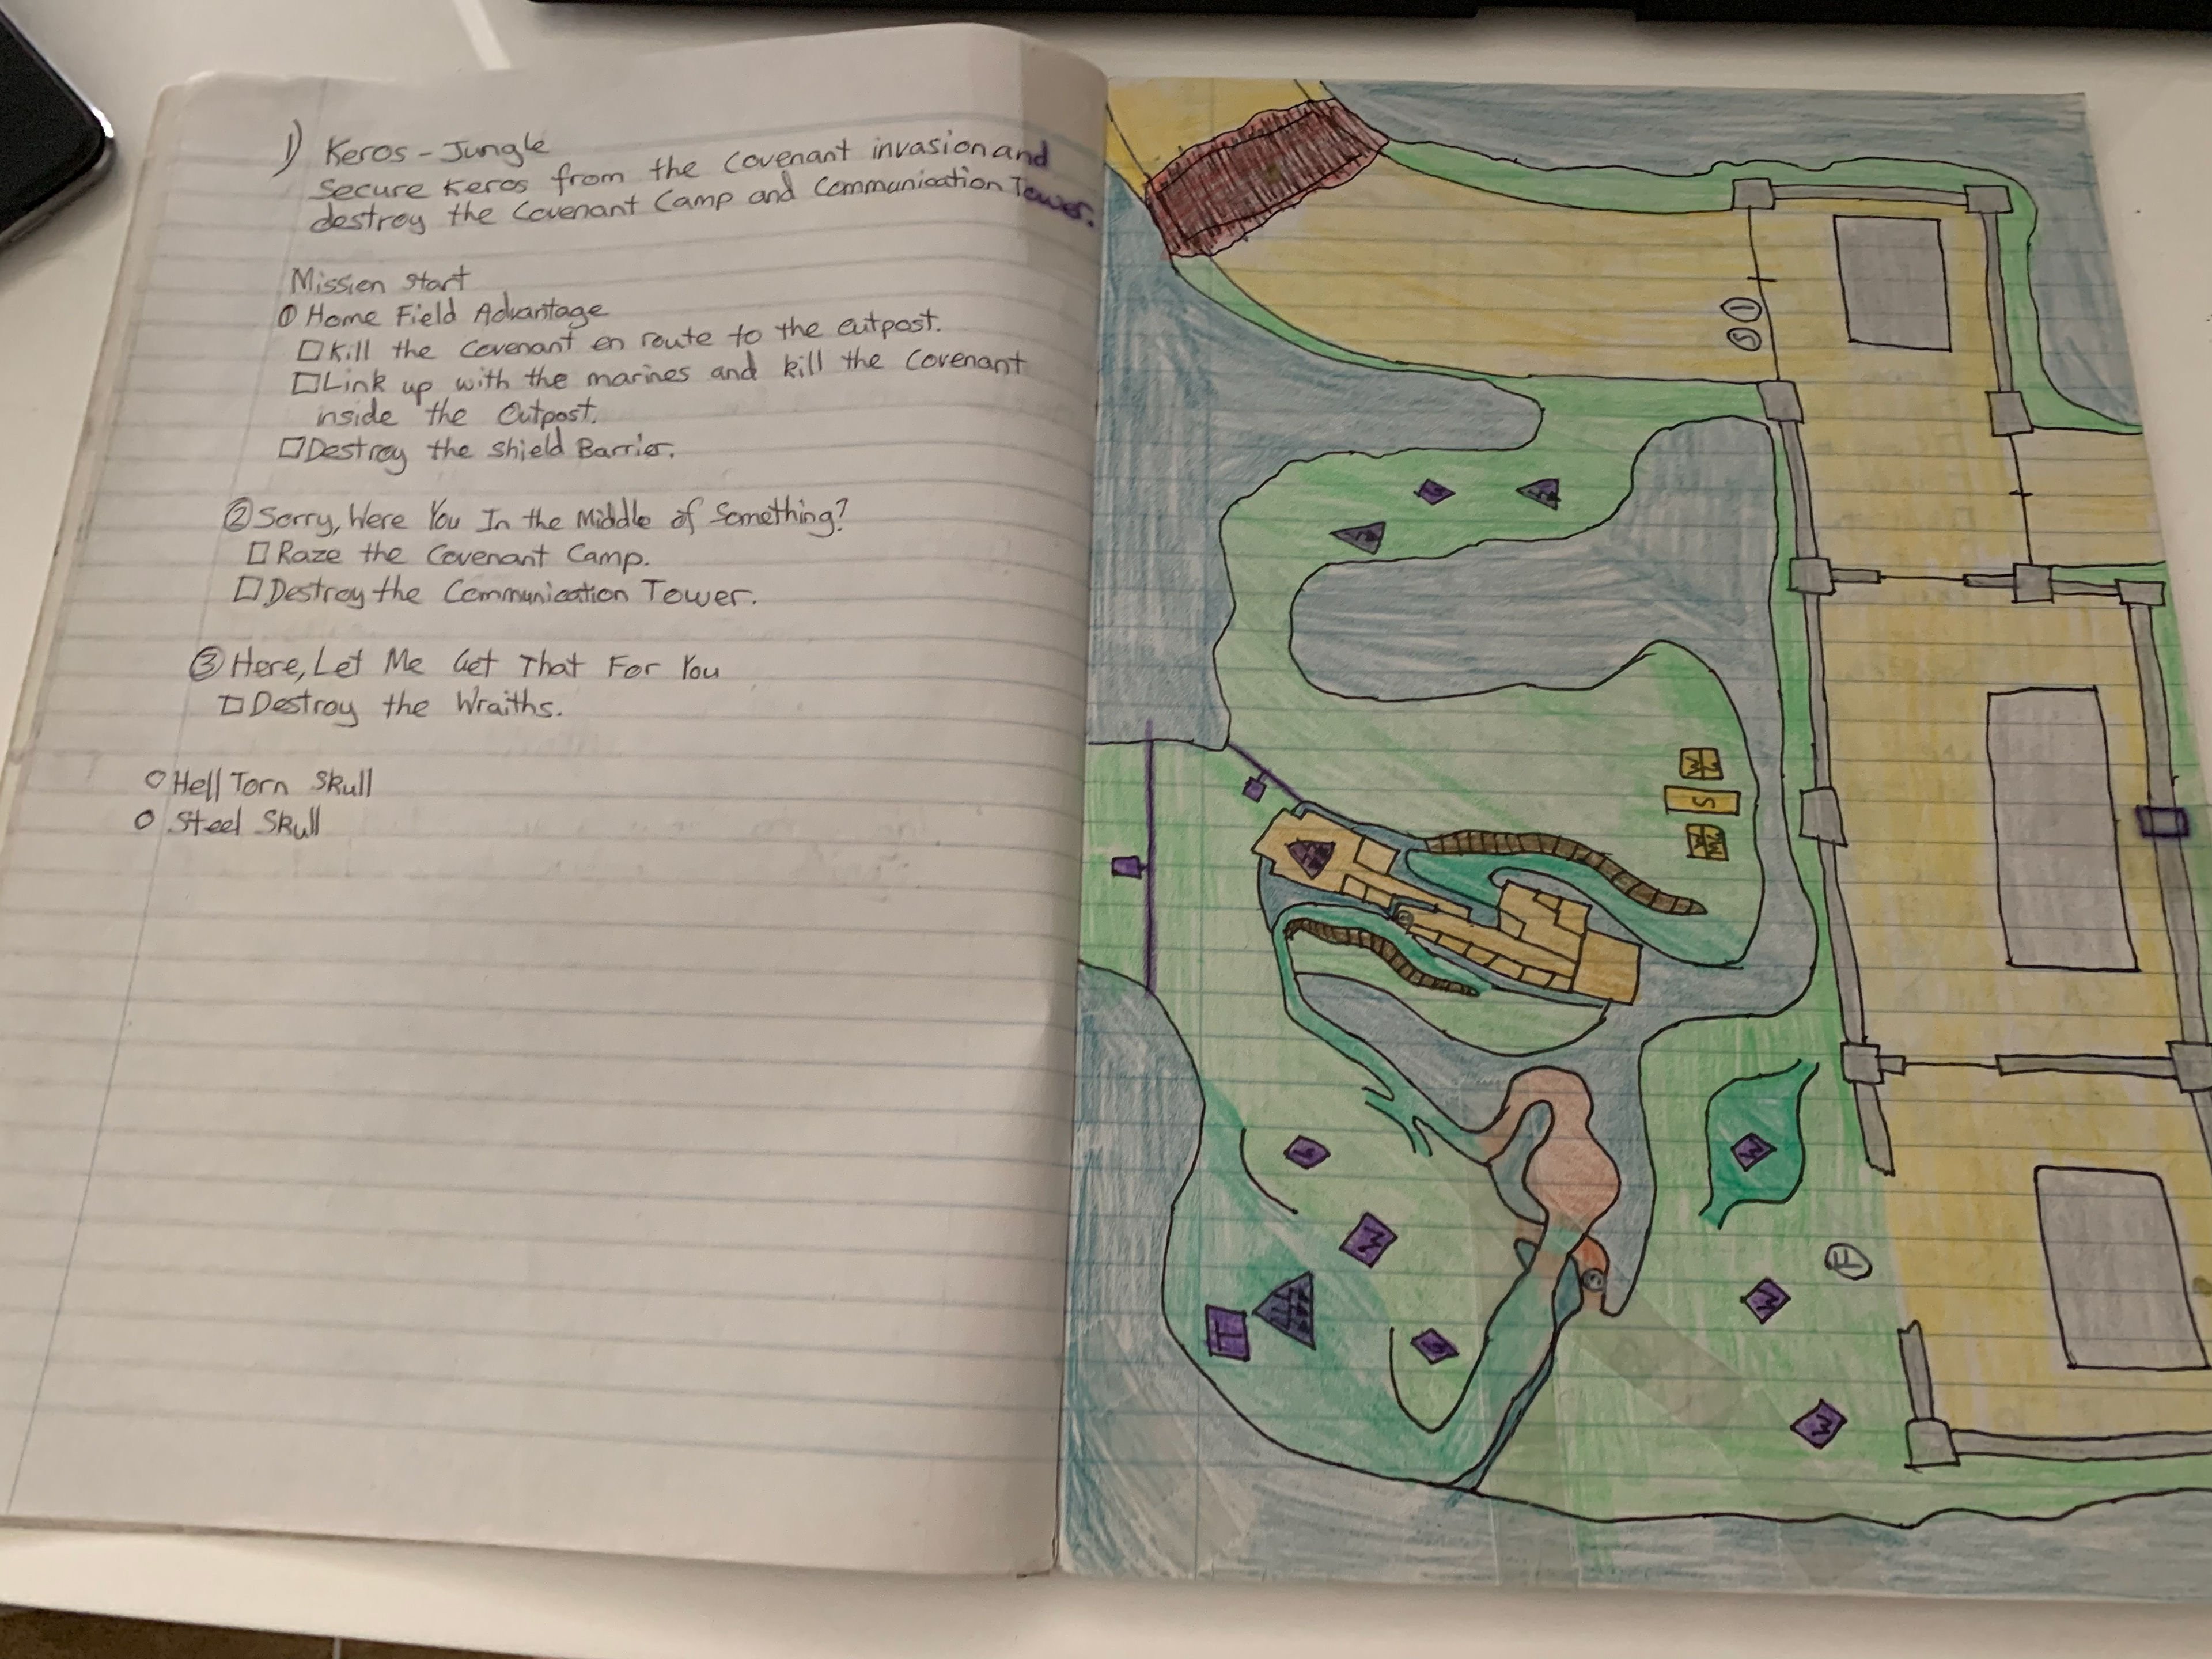 1) Keros - Jungle
Secure Keros from the Covenant invasion and
destroy the Covenant Camp and Communication Tower.
Mission Start
① Home Field Advantage
□ Kill the Covenant en route to the outpost.
□ Link up with the marines and kill the Covenant
inside the Outpost.
□ Destroy the Shield Barrier.
② Sorry, Were You In the Middle of Something?
□ Raze the Covenant Camp.
□ Destroy the Communication Tower.
③ Here, Let Me Get That For You
□ Destroy the Wraiths.
○ Hell Torn Skull
○ Steel Skull
S
F